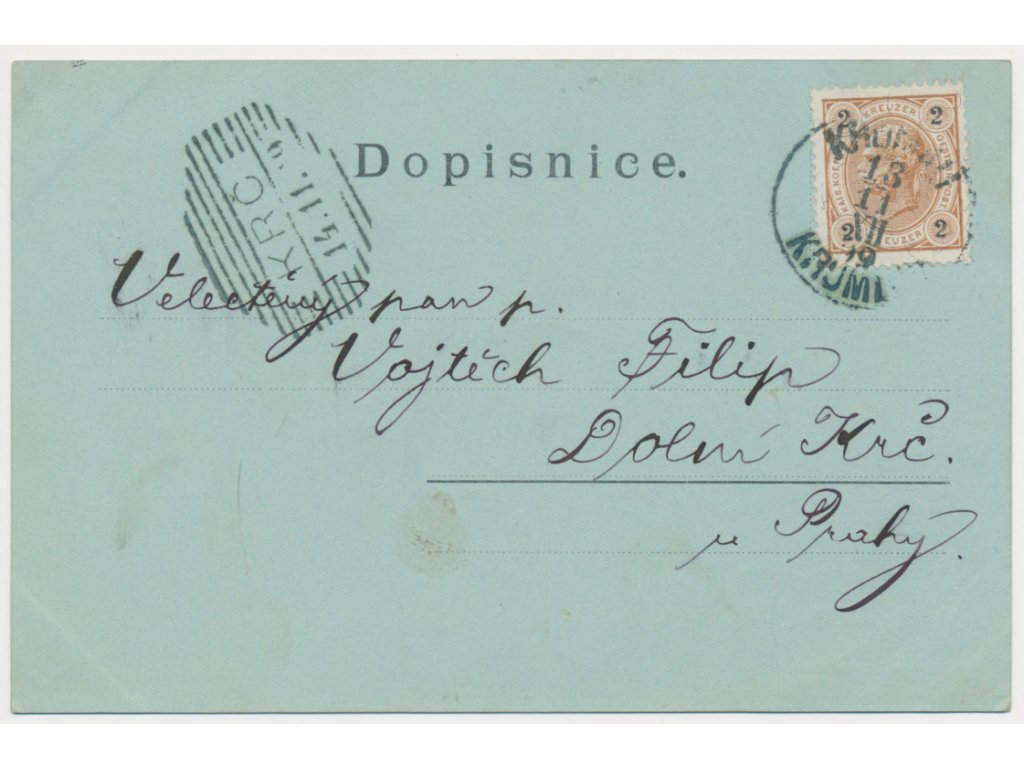 Dopisnice.
2 KREUZER 2
2 KREUZER 2
13
11
KRUM
KRČ
14.11.
Velectěný pan p.
Vojtěch Filip
Dolní Krč.
u Prahy.